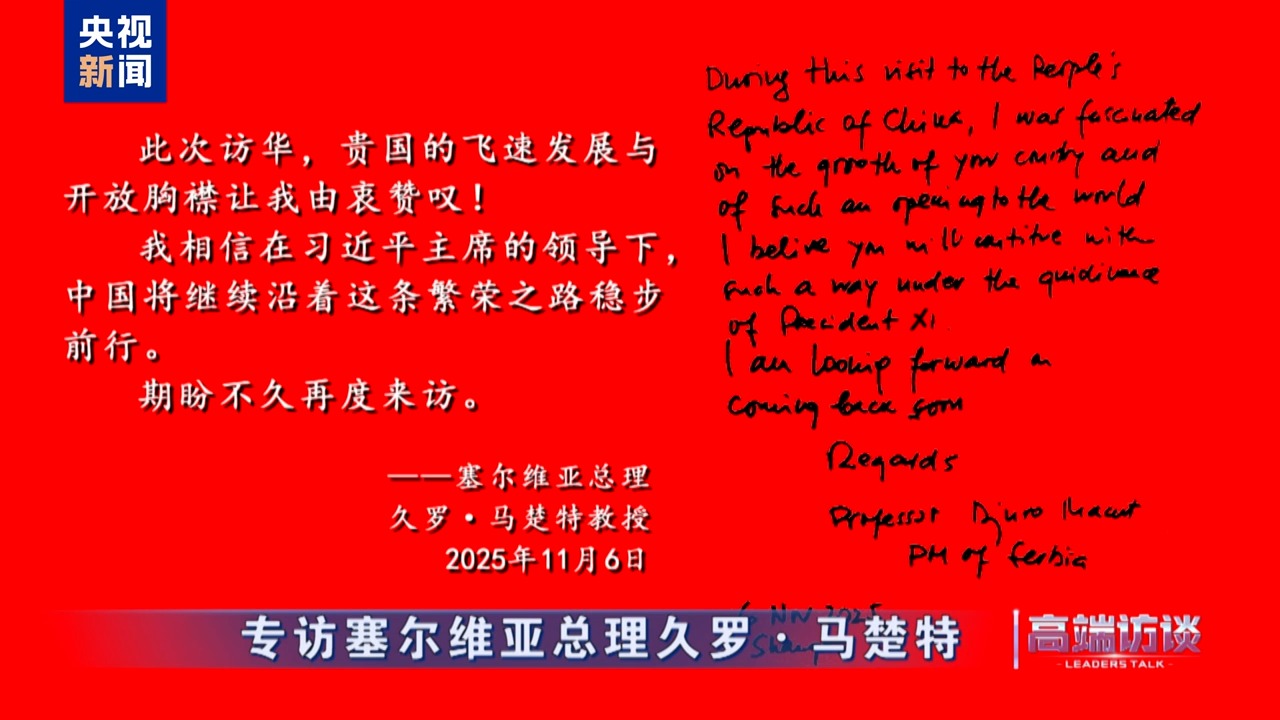 央视
新闻
此次访华，贵国的飞速发展与
开放胸襟让我由衷赞叹！
我相信在习近平主席的领导下，
中国将继续沿着这条繁荣之路稳步
前行。
期盼不久再度来访。
——塞尔维亚总理
久罗·马楚特教授
2025年11月6日
During this visit to the People's
Republic of China, I was fascinated
on the growth of your cuntry and
of such an opening to the world
I belive you will contitue with
such a way under the guidivance
of President Xi.
I am looking forward on
coming back soon
Regards
Professor Djuro Macut
PM of Serbia
6 Nov 2025
专访塞尔维亚总理久罗·马楚特
高端访谈
LEADERS TALK